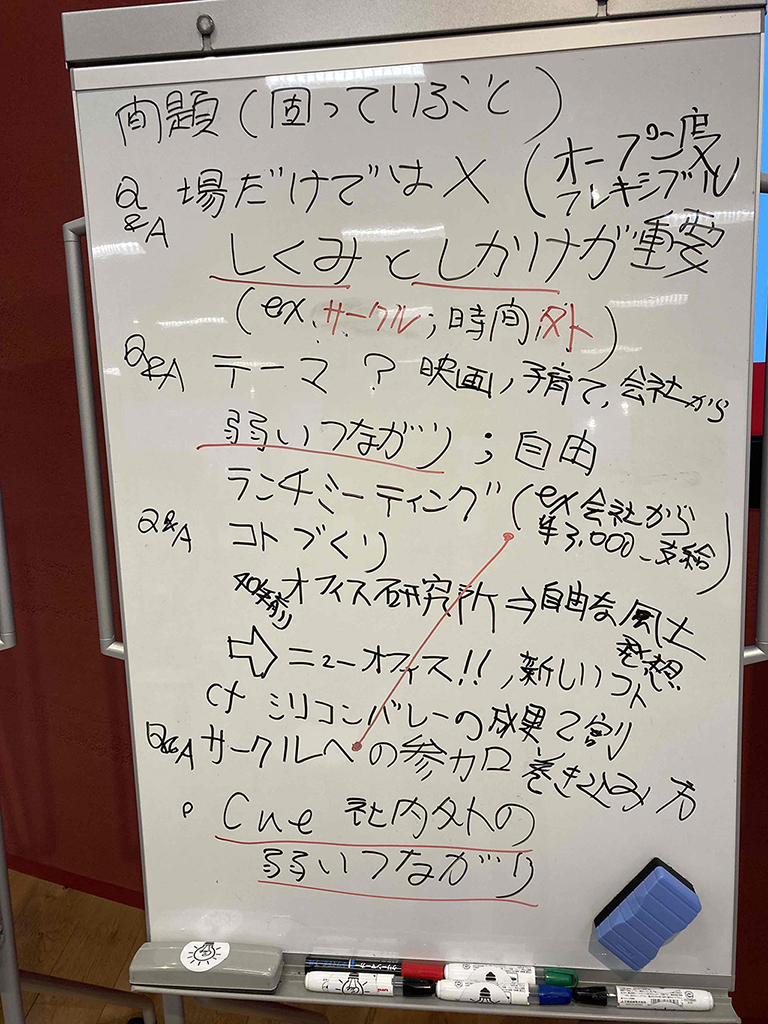 問題(困っていること)
Q&A 場だけでは×(オープン度
フレキシブル
しくみとしかけが重要
(ex.サークル;時間外)
Q&A テーマ? 映画、子育て、会社から
弱いつながり;自由
ランチミーティング(ex会社から
¥3,000-支給)
Q&A コトづくり
40年前 オフィス研究所⇒自由な風土
発想
⇨ニューオフィス!!,新しいコト
cf シリコンバレーの成果2割
Q&A サークルへの参加 巻き込み方
Cue 社内外の
弱いつながり
クリーンマーカー
uni